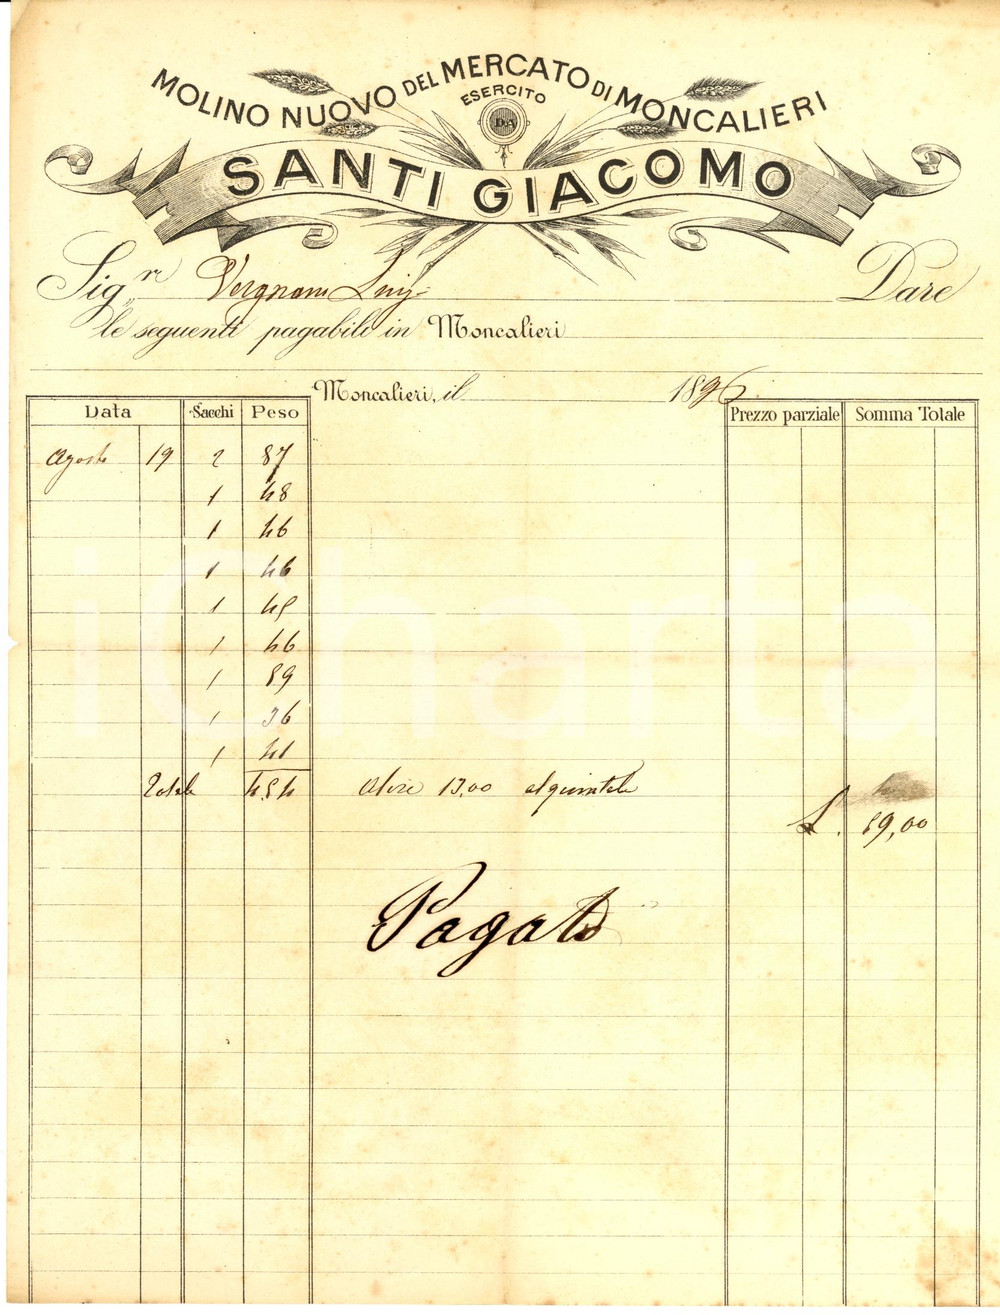 MOLINO NUOVO DEL MERCATO DI MONCALIERI
ESERCITO
DA
SANTI GIACOMO
Sig.r Vergnano Luigi Dare
le seguenti pagabili in Moncalieri
Moncalieri, il 1896
Data Sacchi Peso Prezzo parziale Somma Totale
Agosto 19 2 87
1 48
1 46
1 46
1 45
1 46
1 59
1 36
1 41
Totale 454 a lire 13,00 al quintale
L. 59,00
Pagato
iCharta